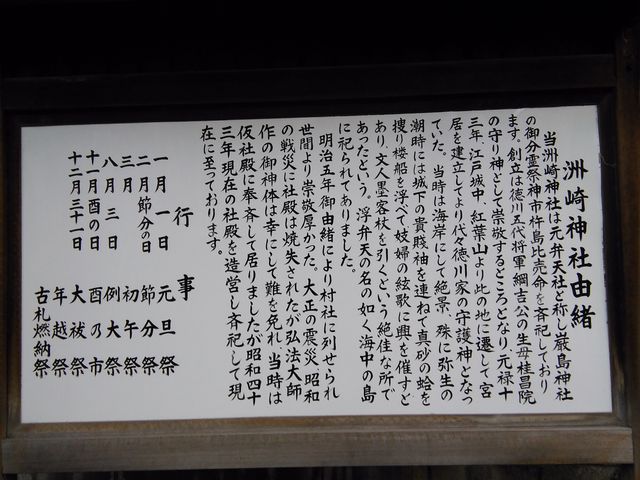 洲崎神社由緒
当洲崎神社は元弁天社と称し厳島神社
の御分霊祭神市杵島比売命を斉祀しており
ます。創立は徳川五代将軍綱吉公の生母桂昌院
の守り神として崇敬するところとなり、元禄十
三年、江戸城中、紅葉山より此の地に遷して宮
居を建立してより代々徳川家の守護神となっ
ていた。当時は海岸にして絶景、殊に弥生の
潮時には城下の貴賎袖を連ねて真砂の蛤を
捜り楼船を浮べて妓婦の絃歌に興を催すと
あり、文人墨客杖を引くという絶佳な所で
あったという。浮弁天の名の如く海中の島
に祀られてありました。
明治五年御由緒により村社に列せられ
世間より崇敬厚かった。大正の震災、昭和
の戦災に社殿は焼失されたが弘法大師
作の御神体は幸にして難を免れ、当時は
仮社殿に奉斉して居りましたが昭和四十
三年現在の社殿を造営し斉祀して現
在に至っております。
行事
一月一日 元旦祭
二月節分の日 節分祭
三月 初午祭
八月三日 例大祭
十一月酉の日 酉の市
十二月三十一日 大祓祭
年越祭
古札燃納祭